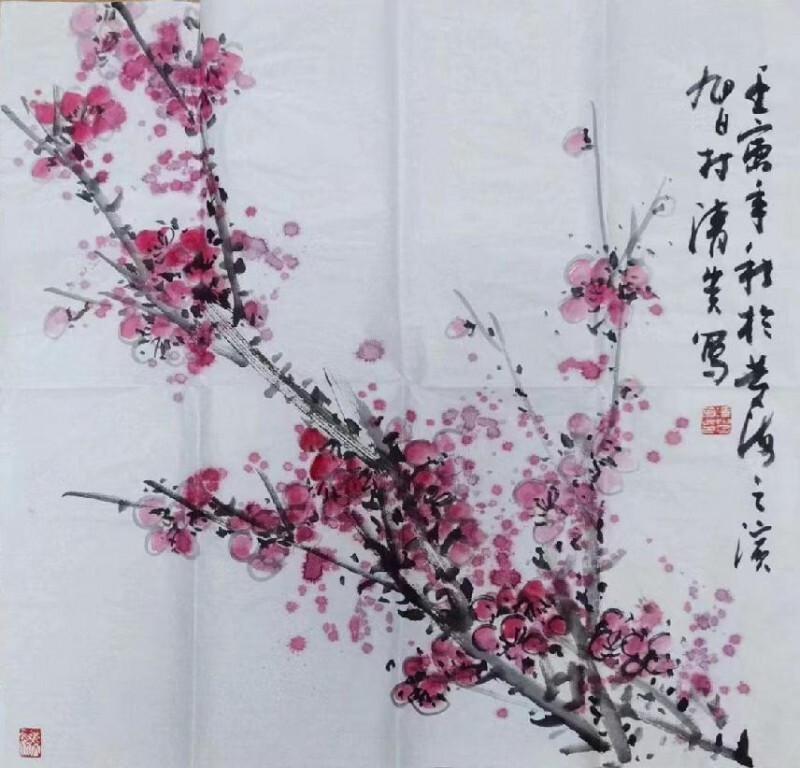 壬寅年秋於黄海之滨
旭日村清贵写